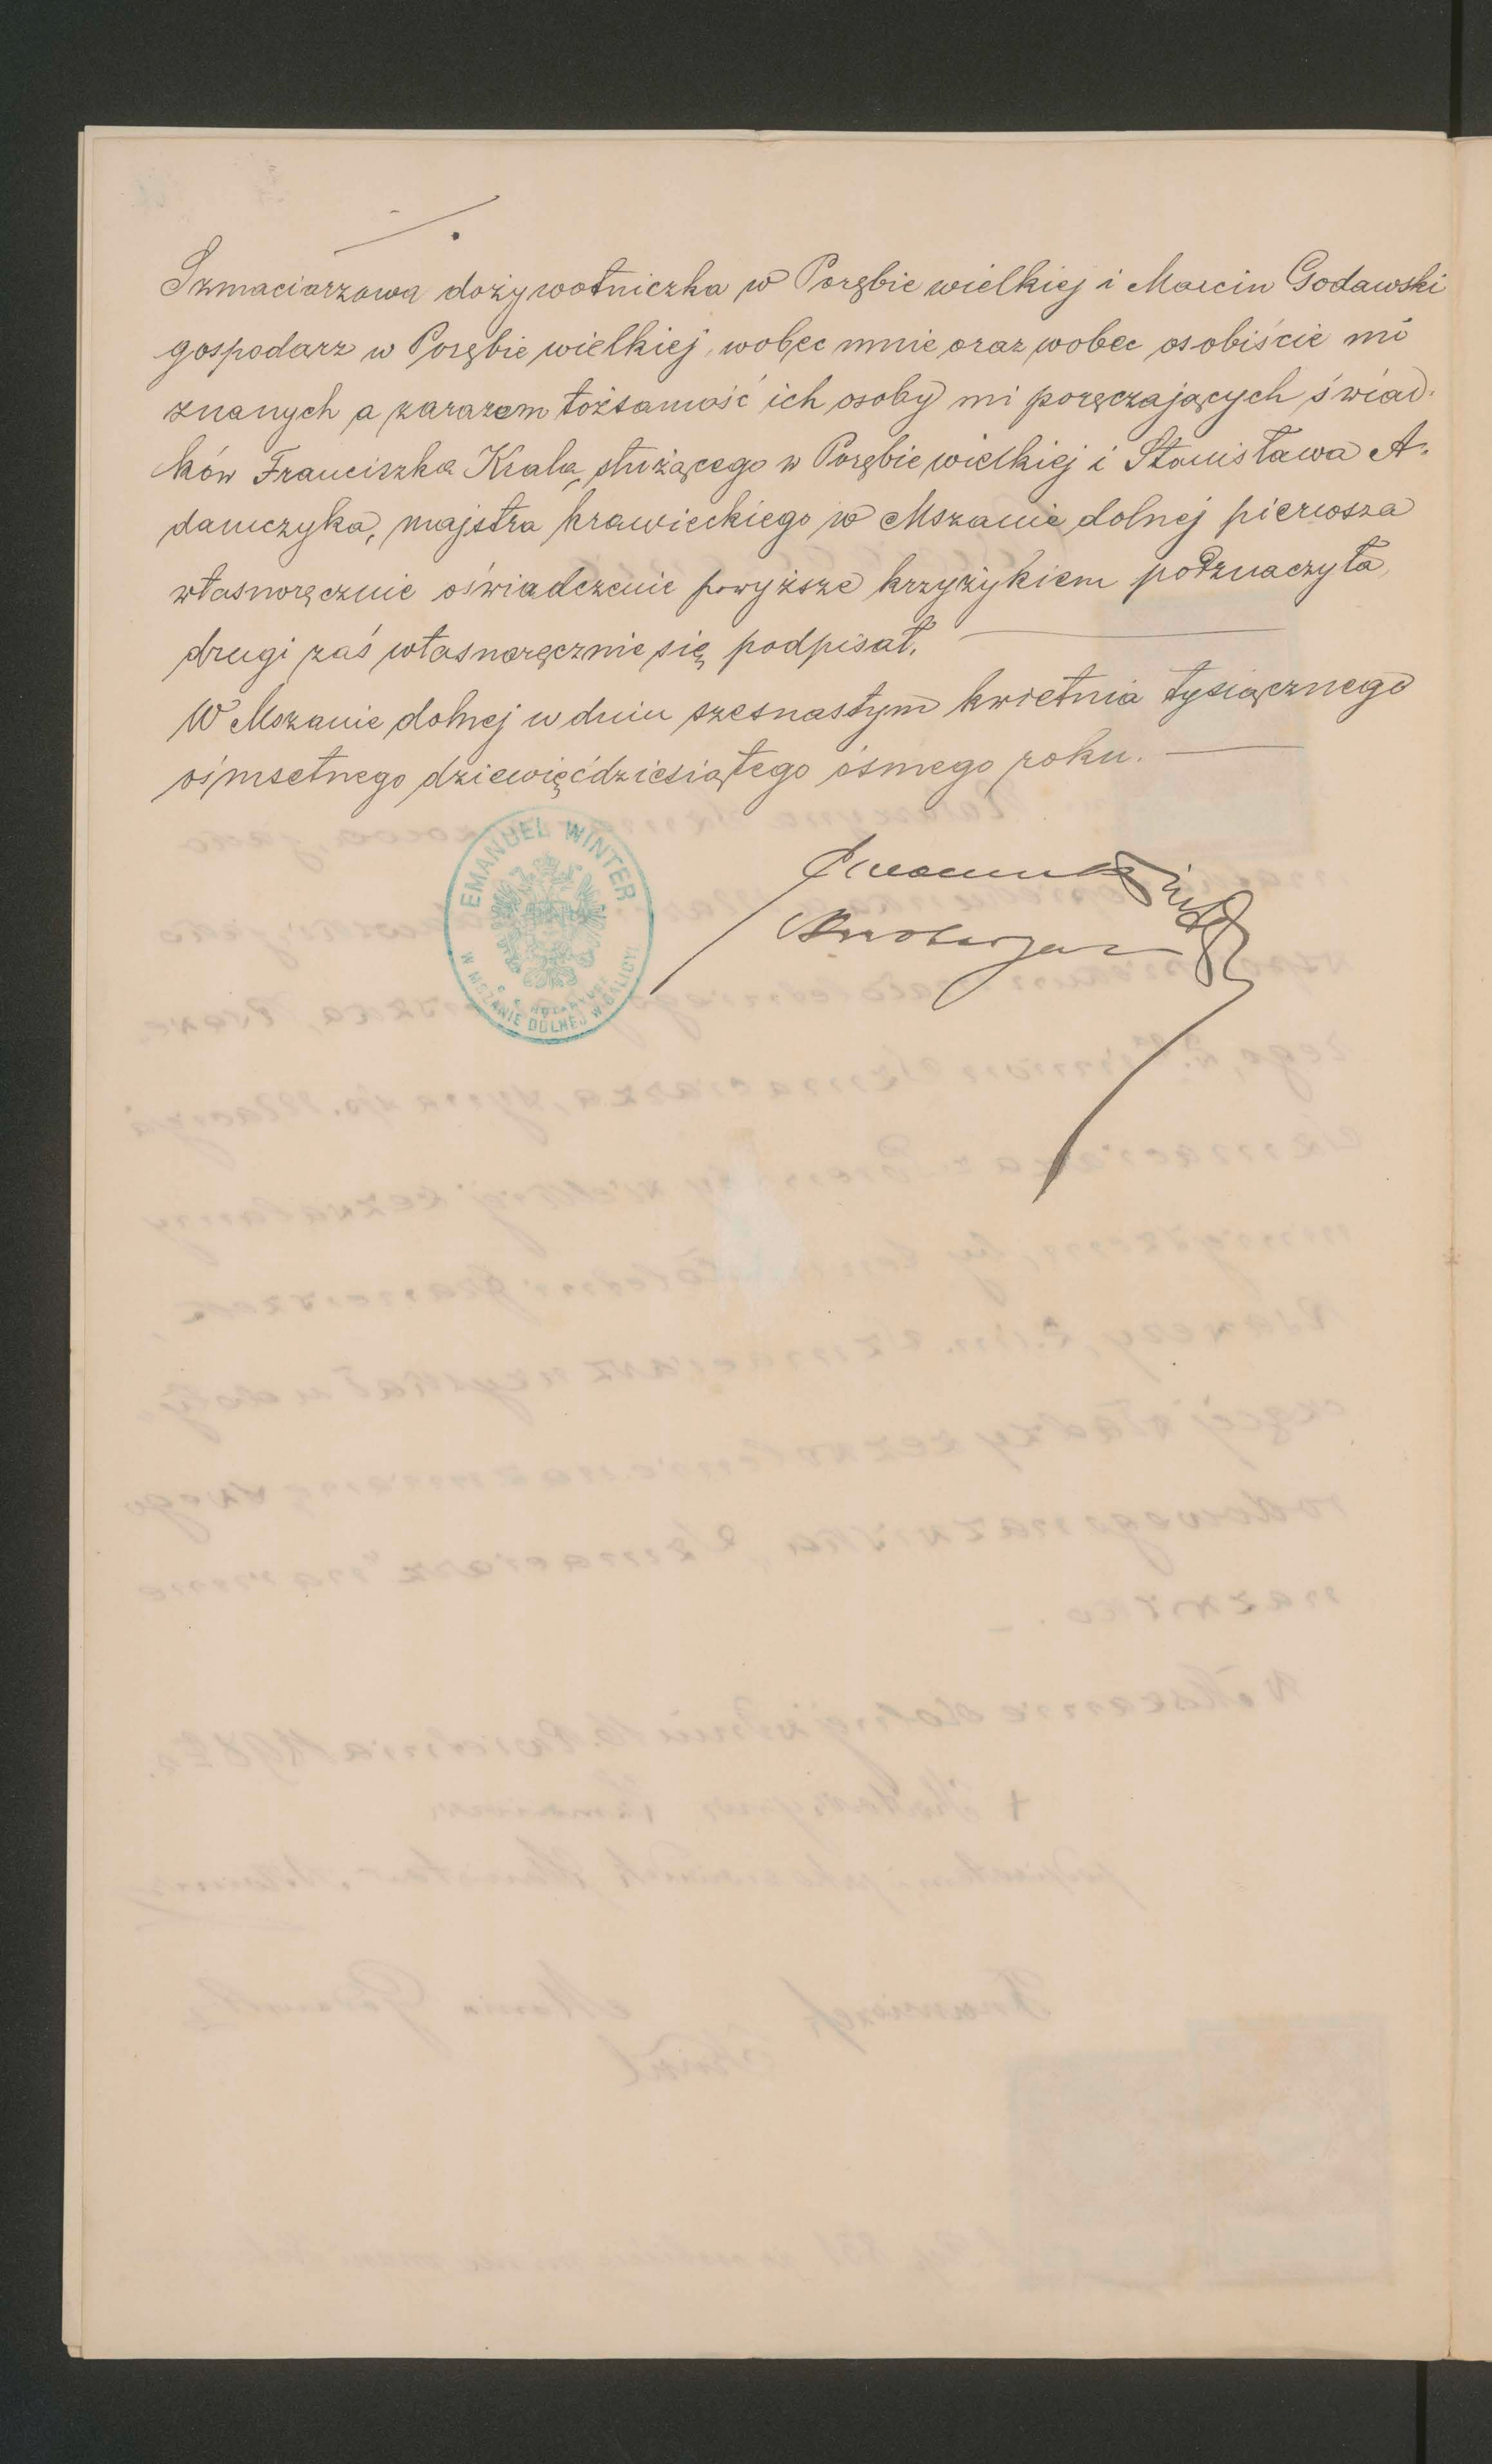 Szmaciarzowa dożywotniczka w Porębie wielkiej i Marcin Godawski
gospodarz w Porębie wielkiej, wobec mnie oraz wobec osobiście mi
znanych a zarazem tożsamość ich osoby mi poręczających świad-
ków Franciszka Krala, służącego w Porębie wielkiej i Stanisława A-
damczyka, majstra krawieckiego w Mszanie dolnej pierwsza
własnoręcznie oświadczenie powyższe krzyżykiem podznaczyła,
drugi zaś własnoręcznie się podpisał.
W Mszanie dolnej w dniu szesnastym kwietnia tysiącznego
ośmsetnego dziewięćdziesiątego ósmego roku.
EMANUEL WINTER
C. K. NOTARYUSZ
W MSZANIE DOLNEJ W GALICYI
Emanuel Winter